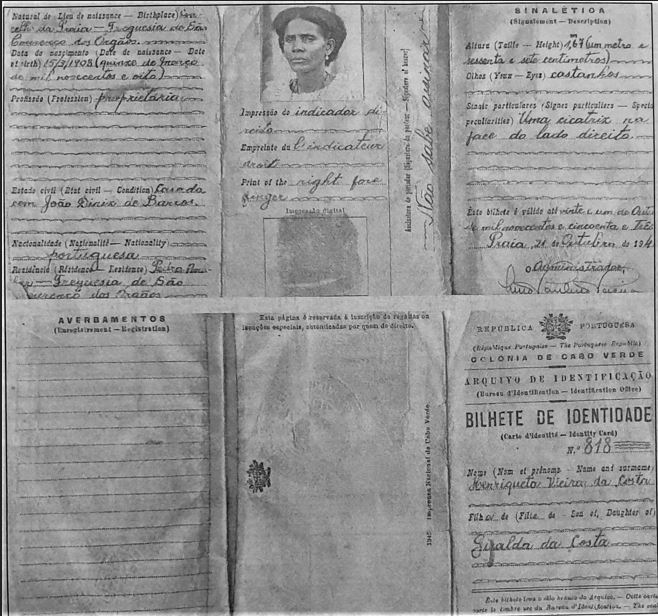 Natural de (Lieu de naissance — Birthplace)
da Praia — Freguesia de São
Lourenço dos Orgãos.
Data do nascimento (Date de naissance — Date
of birth) 15/3/1908 (quinze de Março
de mil novecentos e oito)
Profissão (Profession) proprietária
Estado civil (État civil — Condition) Casada
com João Diniz de Barros.
Nacionalidade (Nationalité — Nationality)
portuguesa
Residência (Résidence — Residence) Pedra
Freguesia de São
Lourenço dos Orgãos
Impressão do indicador di-
reito
Empreinte du l'indicateur
droit
Print of the right fore
finger
Impressão digital
Assinatura do portador (Signature du porteur — Signature of bearer)
Não sabe assinar
SINALÉTICA
(Signalement — Description)
Altura (Taille — Height) 1,67 (um metro e
sessenta e sete centímetros)
Olhos (Yeux — Eyes) castanhos
Sinais particulares (Signes particuliers — Special
peculiarities) Uma cicatriz na
face do lado direito.
Este bilhete é válido até vinte e um de
de mil novecentos e cincoenta e
Praia, 21 de Outubro de 194
o Administrador,
AVERBAMENTOS
(Enregistrement — Registration)
Esta página é reservada à inscrição de regalias ou
isenções especiais, autenticadas por quem de direito.
1945 Imprensa Nacional de Cabo Verde
REPÚBLICA PORTUGUESA
(République Portugaise — The Portuguese Republic)
COLONIA DE CABO VERDE
ARQUIVO DE IDENTIFICAÇÃO
(Bureau d'Identification — Identification Office)
BILHETE DE IDENTIDADE
(Carte d'identité — Identity Card)
N.º 818
Nome (Nom et prénoms - Name and surname)
Henriqueta Vieira da Costa
Filha de (Fille de - Son of, Daughter of)
Giralda da Costa
Este bilhete leva o sêlo branco do Arquivo. — Cette carte
porte le timbre sec du Bureau d'Identification. — The